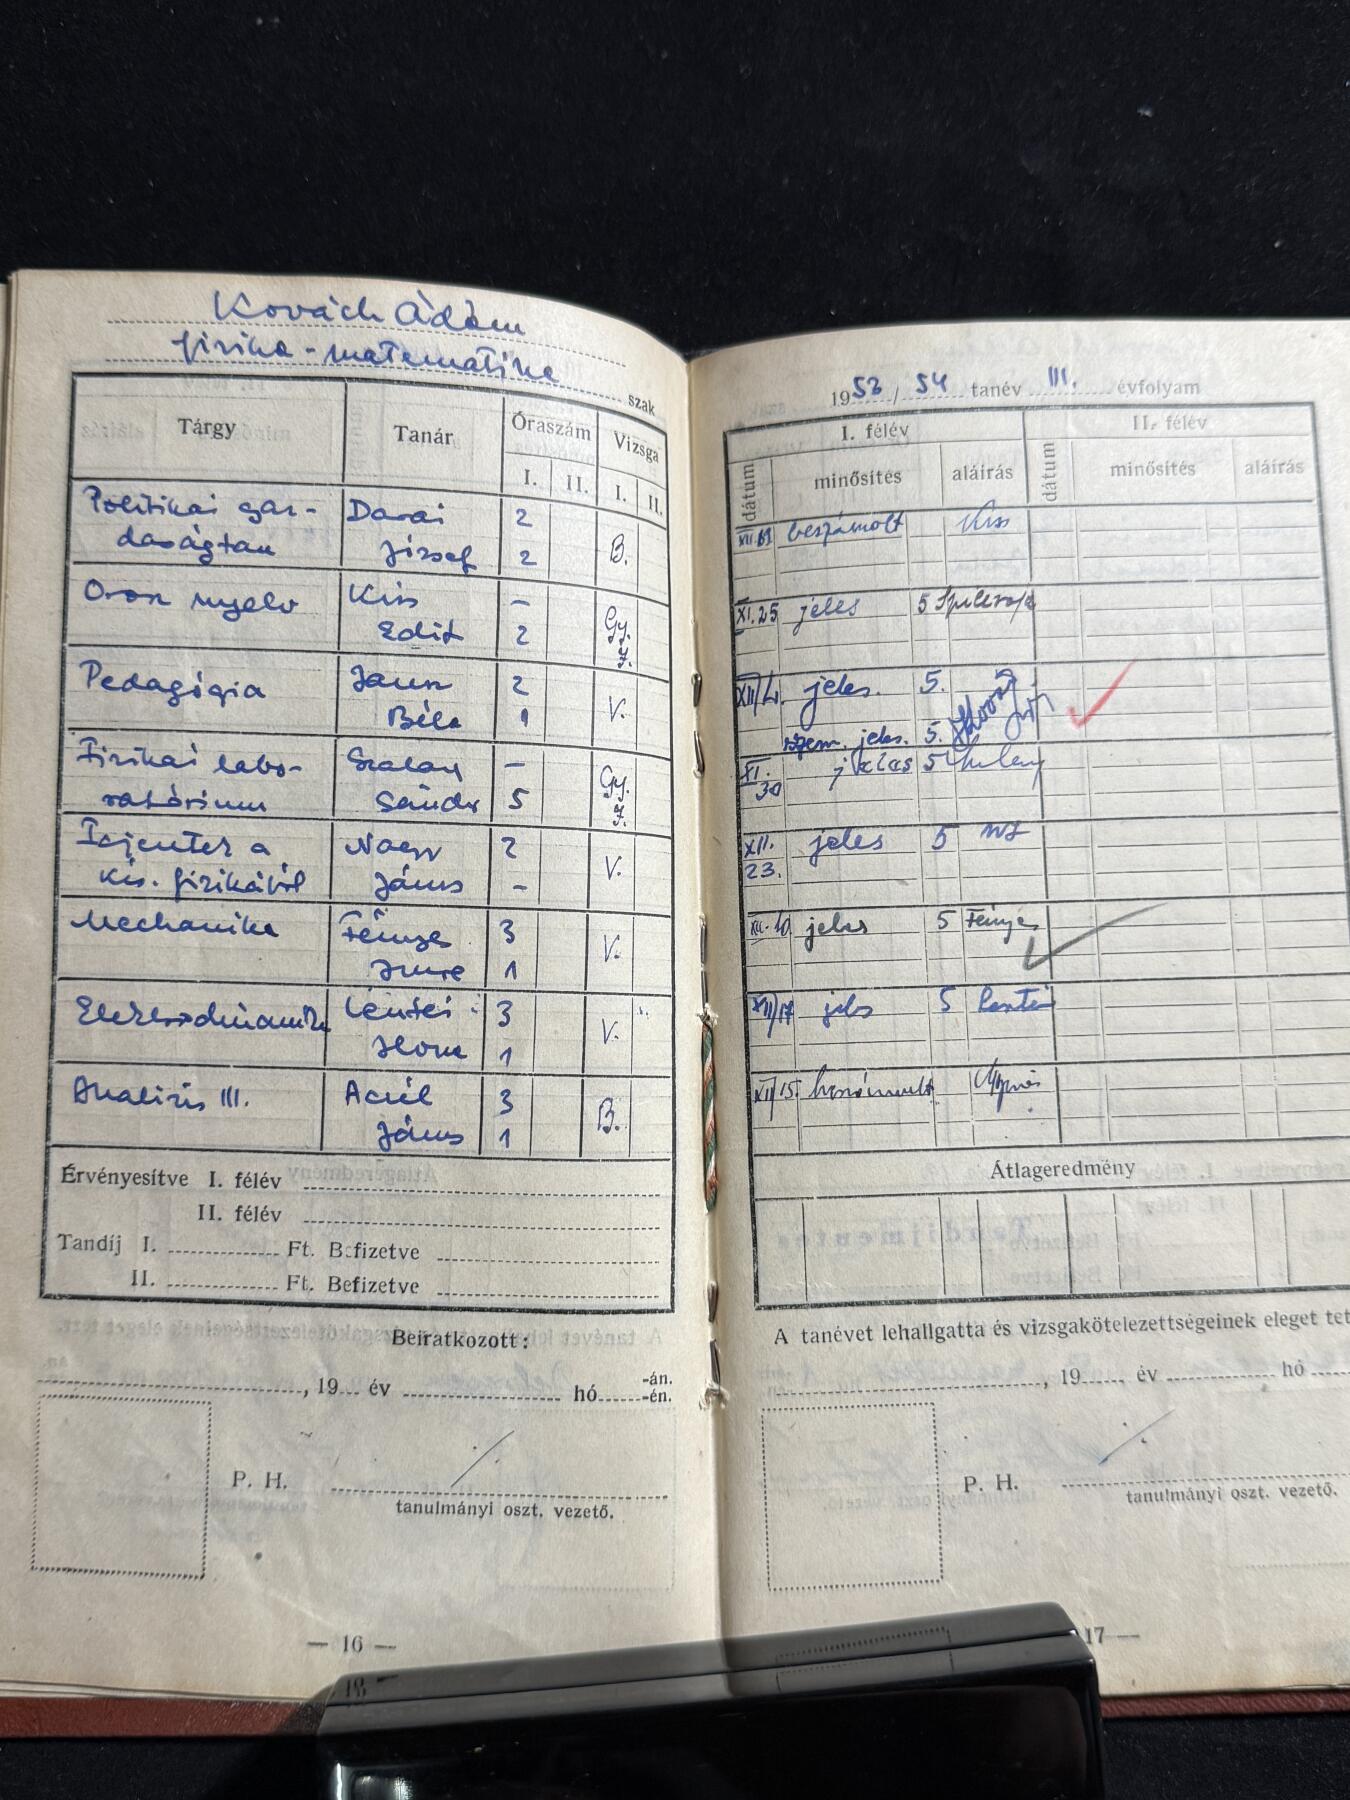 Kovách Ádám
fizika - matematika szak
Tárgy Tanár Óraszám Vizsga
I. II. I. II.
Politikai gaz- Darai 2
daságtan József 2 B.
Orosz nyelv Kiss – Gy.
Edit 2 J.
Pedagógia Jausz 2
Béla 1 V.
Fizikai labo- Szalay – Gy.
ratórium Sándor 5 J.
Fejezetek a Nagy 2
kis. fizikából János – V.
Mechanika Fényes 3
Imre 1 V.
Elektrodinamika Léntei 3
Ilona 1 V.
Analízis III. Aczél 3
János 1 B.
Érvényesítve I. félév
II. félév
Tandíj I. Ft. Befizetve
II. Ft. Befizetve
Beiratkozott:
, 19 év hó -án.
-én.
P. H.
tanulmányi oszt. vezető.
— 16 —
1953/54 tanév III. évfolyam
I. félév II. félév
dátum minősítés aláírás dátum minősítés aláírás
beszámolt Kiss
XI.25 jeles 5
XII/4. jeles. 5.
szem. jeles. 5.
XI. 5
30
XII. jeles 5
23.
XII.10 jeles 5 Fényes
XII/17 jeles 5
XII/15.
Átlageredmény
A tanévet lehallgatta és vizsgakötelezettségeinek eleget tet
, 19 év hó
P. H.
tanulmányi oszt. vezető.
17 —
18